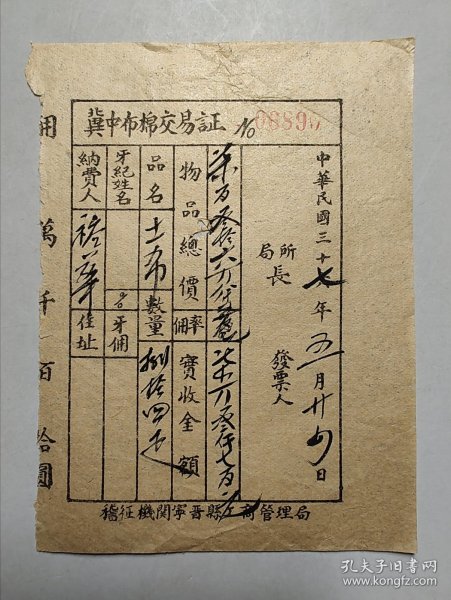 冀中布棉交易証
No 08890
中華民國三十七年五月廿四日
所局長
發票人
物品總價
柒百叁拾六万
率佣
實收金額
品名
土布
數量
捌拾四疋
牙紀姓名
牙佣
納費人
住址
稽征機関寧晋縣工商管理局
佣
萬
千
百
拾圓
孔夫子旧书网
www.kongfz.com